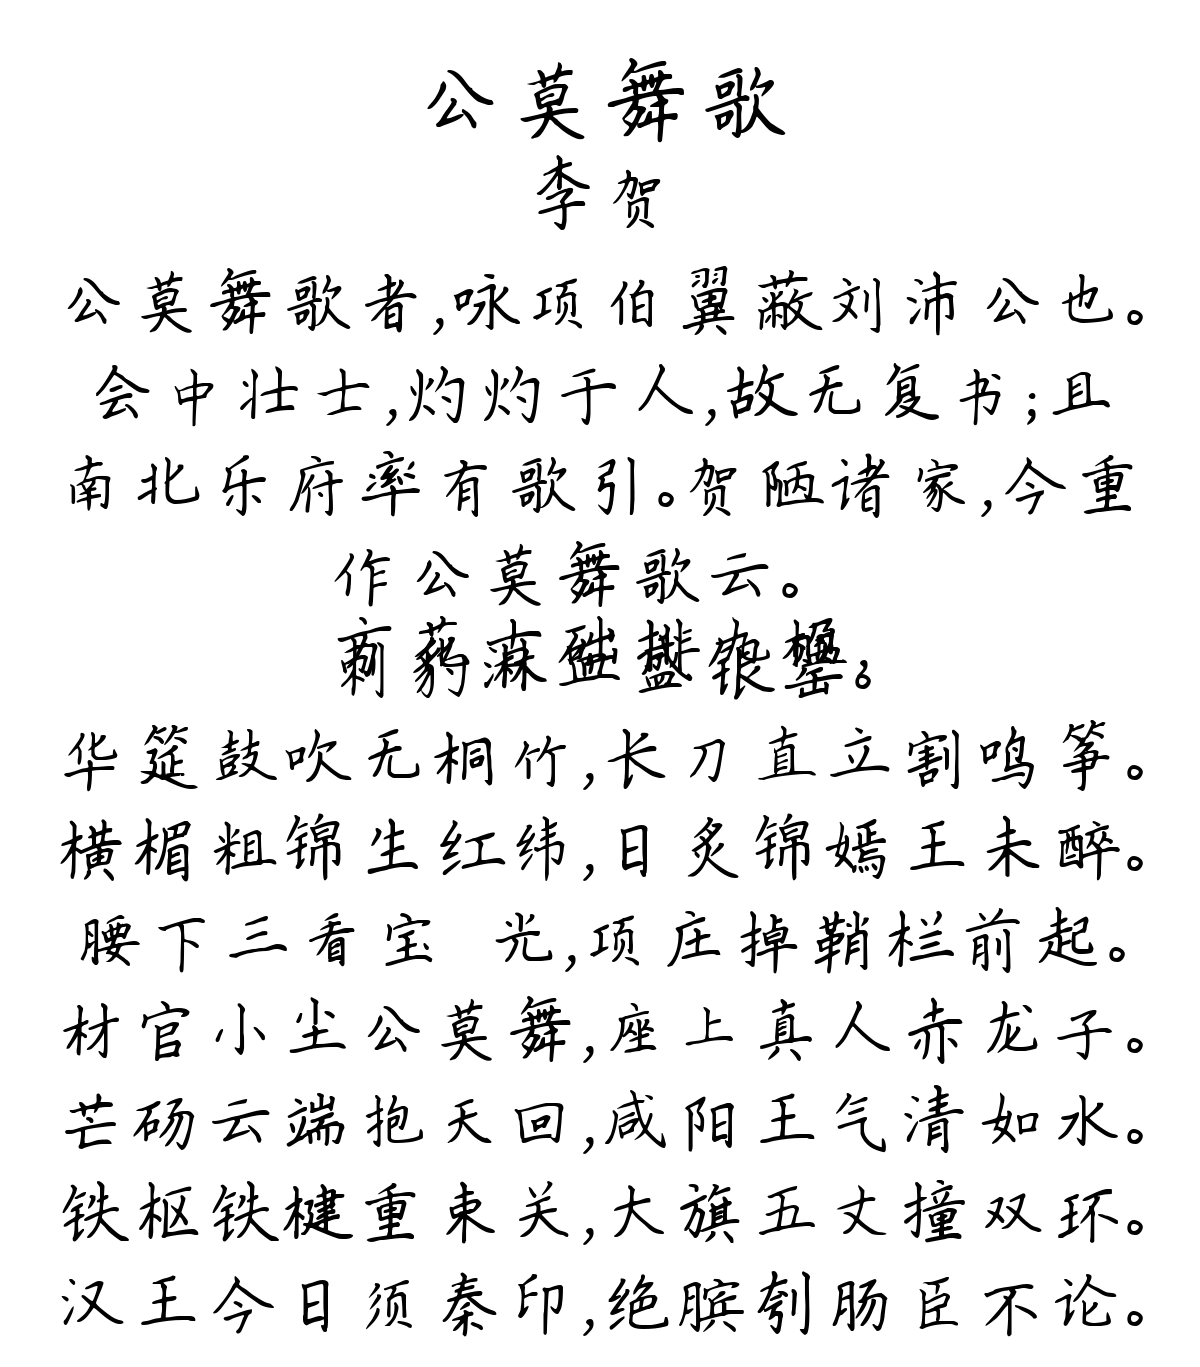 公莫舞歌
李贺
公莫舞歌者,咏项伯翼蔽刘沛公也。
会中壮士,灼灼于人,故无复书;且
南北乐府率有歌引。贺陋诸家,今重
作公莫舞歌云。
华筵鼓吹无桐竹,长刀直立割鸣筝。
横楣粗锦生红纬,日炙锦嫣王未醉。
腰下三看宝 光,项庄掉鞘栏前起。
材官小尘公莫舞,座上真人赤龙子。
芒砀云端抱天回,咸阳王气清如水。
铁枢铁楗重束关,大旗五丈撞双环。
汉王今日须秦印,绝膑刳肠臣不论。